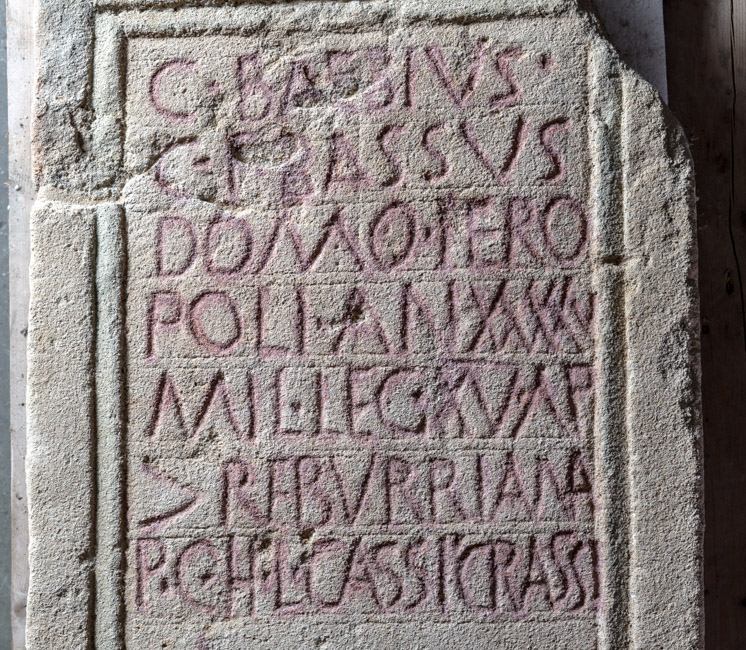 C·BAEBIVS·
C·F·BASSVS
DOMO·IERO
POLI·AN XXXXV
MIL·LEG·XV·AP
> REBVRRIANA
P·C·H·L·CASSI·CRASSI